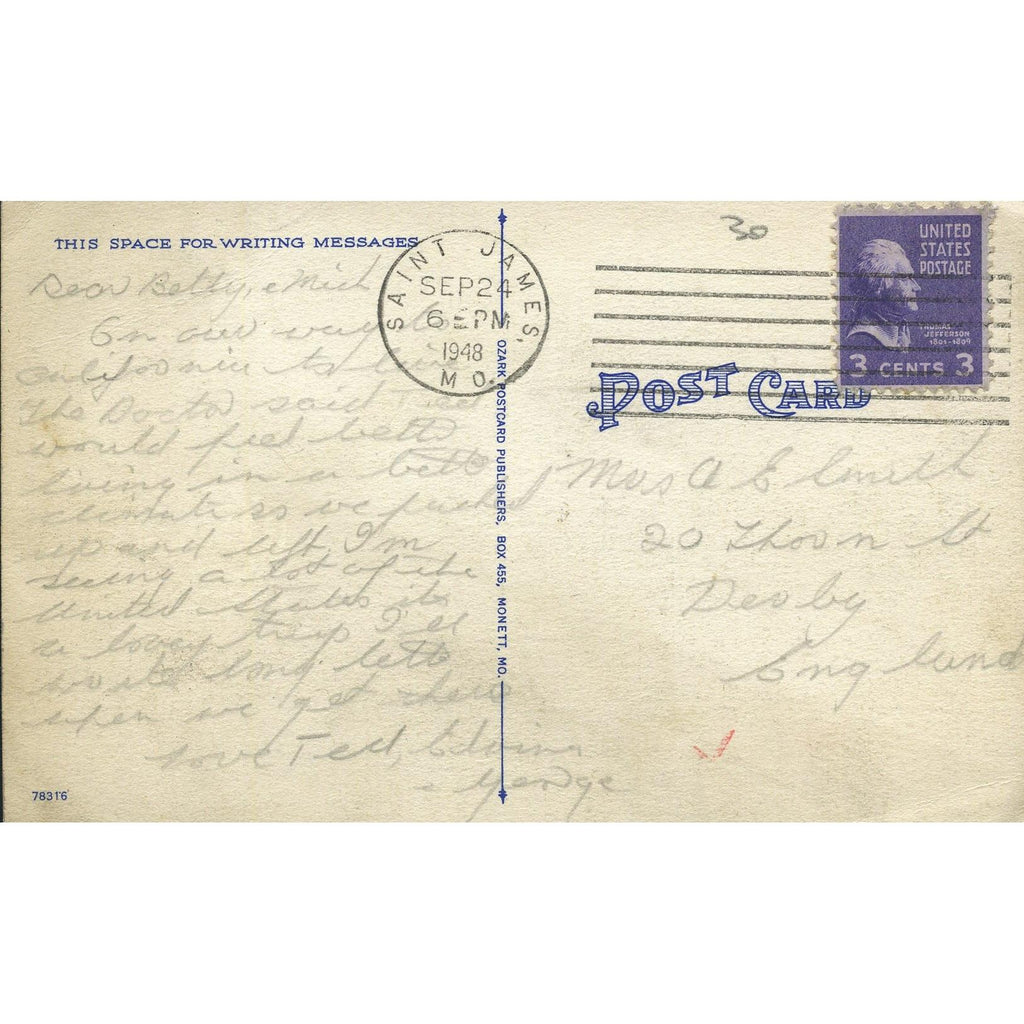 THIS SPACE FOR WRITING MESSAGES
Dear Betty, & Mich
On our way to
California to live
The doctor said
would feel better
living in a better
climate so we packed
up and left, I'm
seeing a lot of the
United States its
a lovely trip I'll
write long letter
when we get there
Love Ted, Edwina
& George
78316
SAINT JAMES,
SEP 24
6 PM
1948
MO.
OZARK POSTCARD PUBLISHERS, BOX 455, MONETT, MO.
30
UNITED
STATES
POSTAGE
THOMAS
JEFFERSON
1801-1809
3 CENTS 3
POST CARD
Mrs A E Smith
20 Thorn St
Derby
England